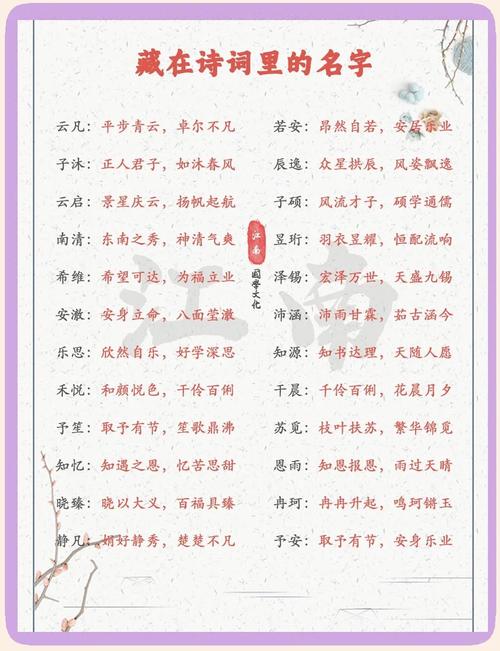 藏在诗词里的名字
云凡：平步青云，卓尔不凡
子沐：正人君子，如沐春风
云启：景星庆云，扬帆起航
南清：东南之秀，神清气爽
希维：希望可达，为福立业
安澈：安身立命，八面莹澈
乐思：欣然自乐，好学深思
禾悦：和颜悦色，千伶百俐
予笙：取予有节，笙歌鼎沸
知忆：知遇之恩，忆苦思甜
晓臻：晓以大义，百福具臻
静凡：娟好静秀，楚楚不凡
若安：昂然自若，安居乐业
辰逸：众星拱辰，风姿飘逸
子硕：风流才子，硕学通儒
昱珩：羽衣昱耀，恒配流响
泽锡：宏泽万世，天盛九锡
沛涵：沛雨甘霖，茹古涵今
知源：知书达理，天随人愿
千晨：千伶百俐，花晨月夕
苏觅：枝叶扶苏，繁华锦觅
恩雨：知恩报恩，雨过天晴
冉珂：冉冉升起，鸣珂锵玉
予安：取予有节，安身乐业
江南
国学文化
江南